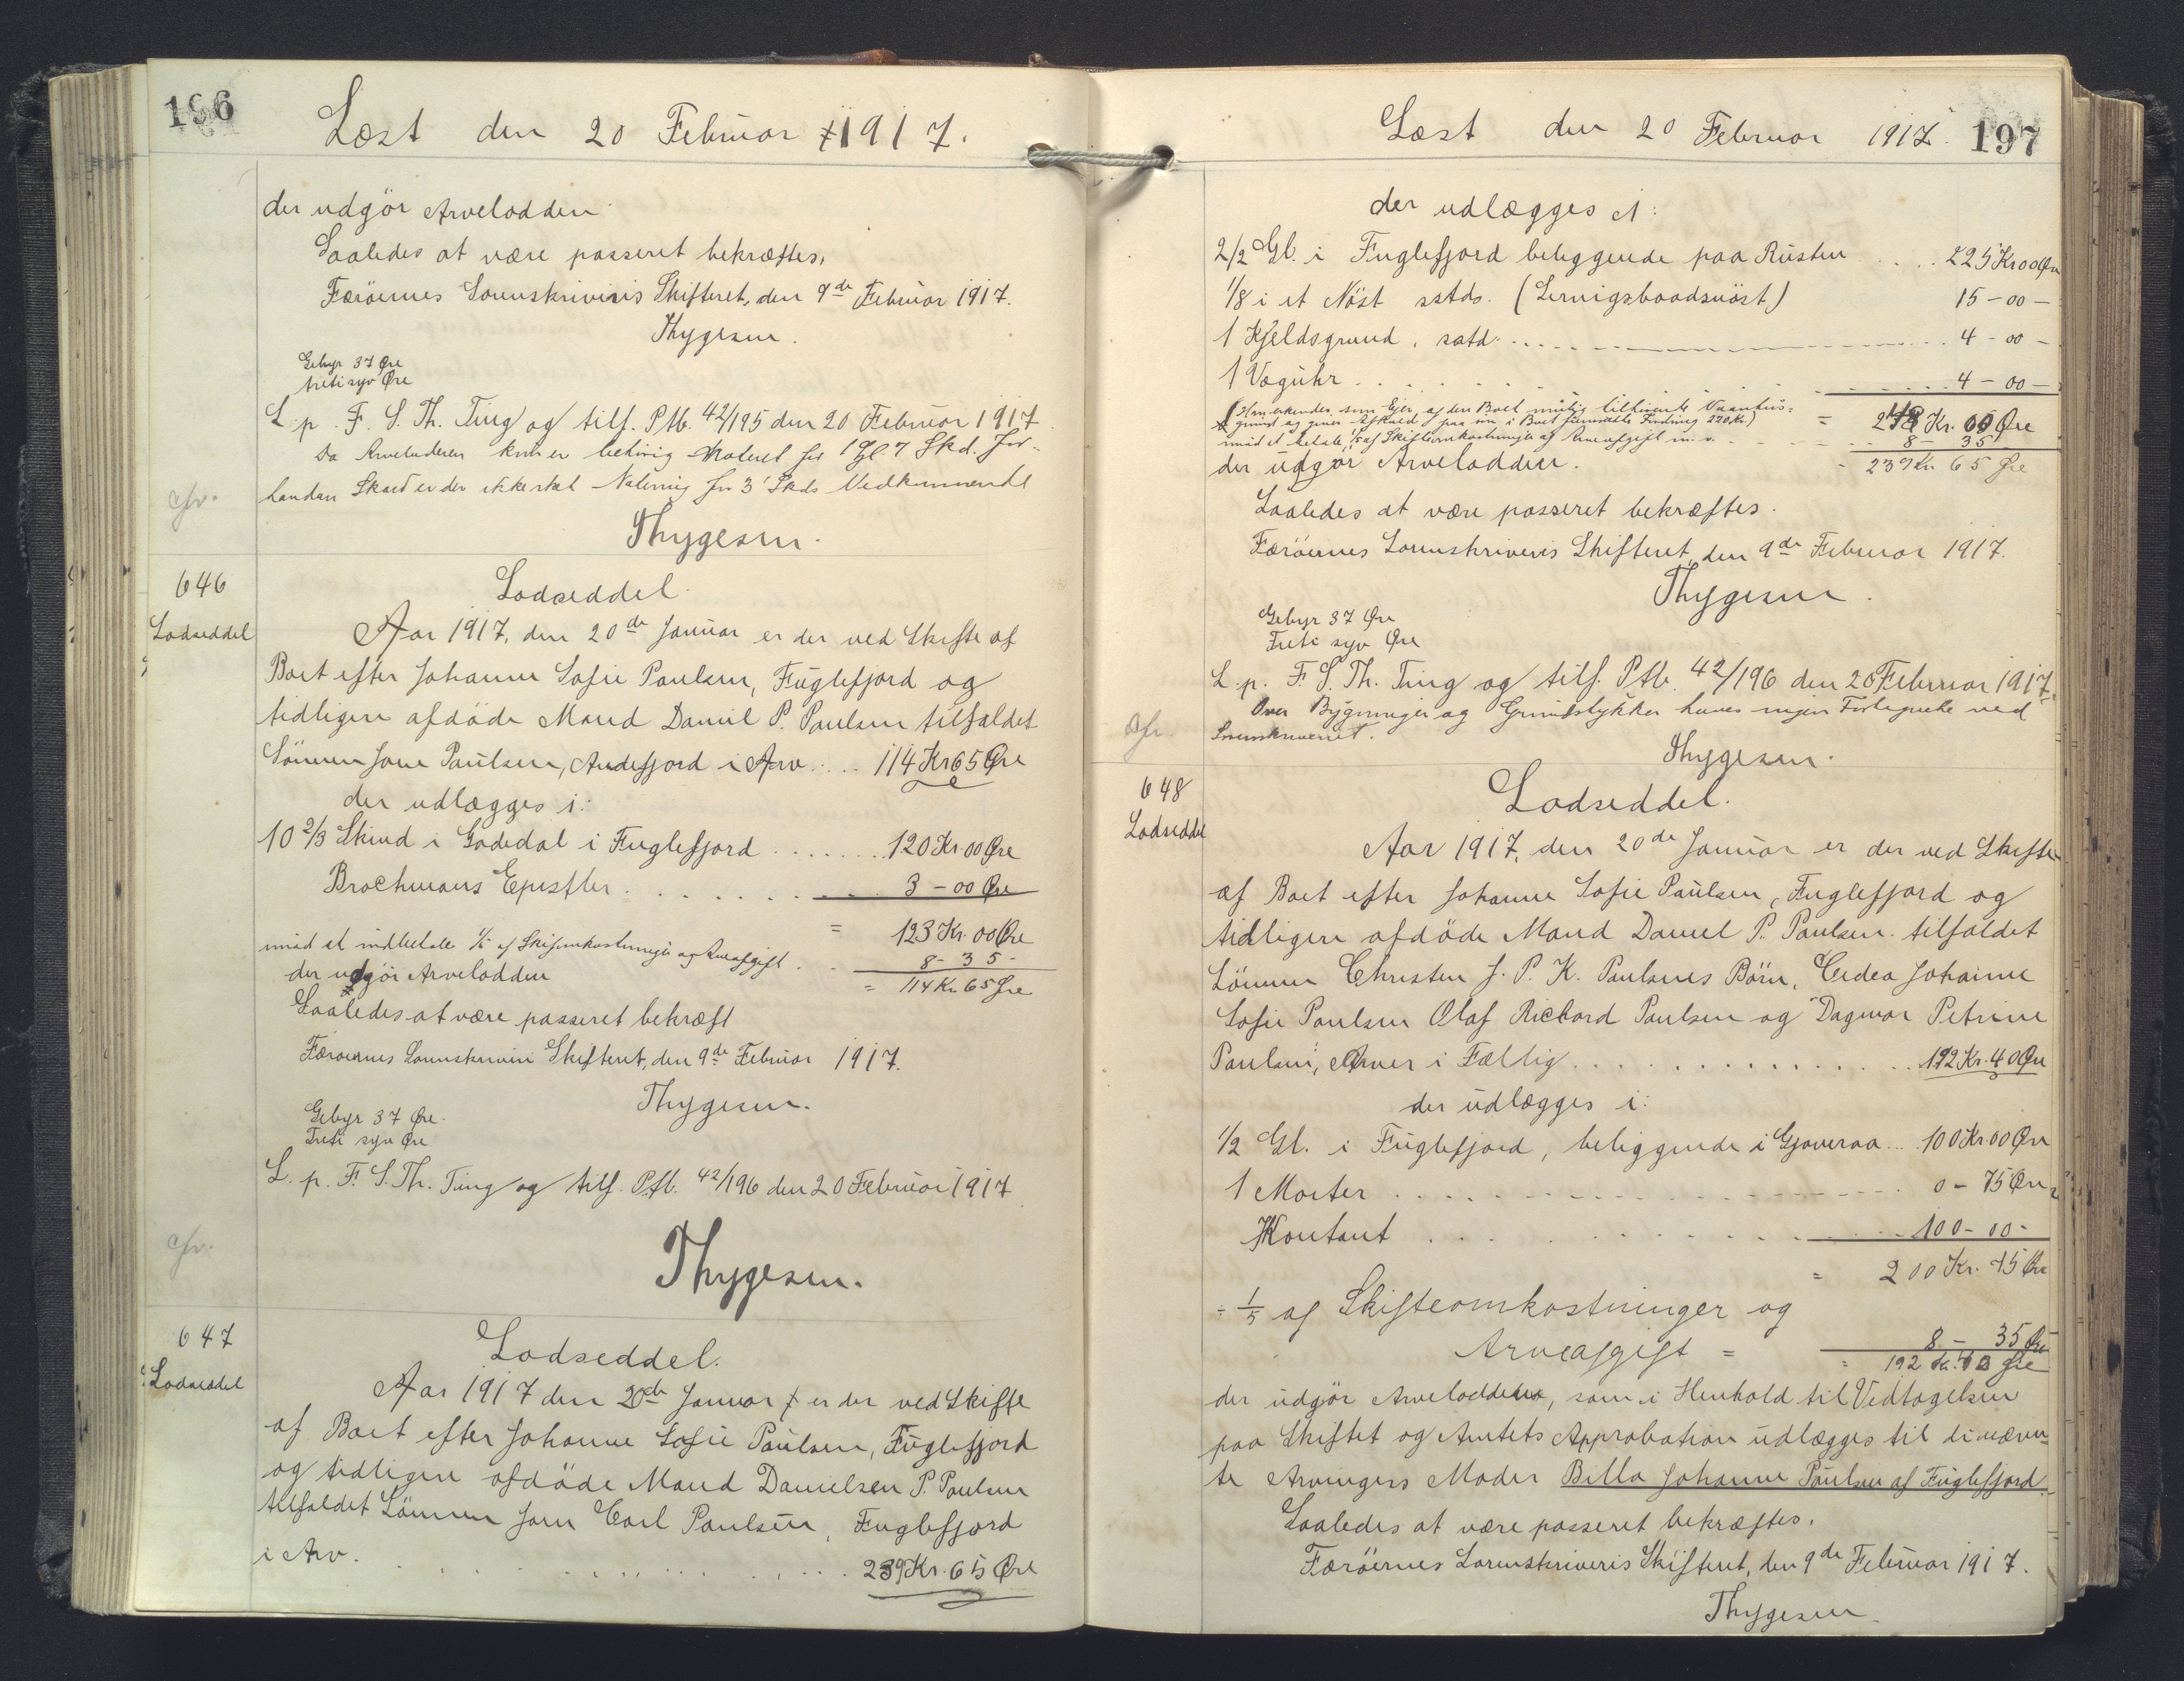 196
Læst den 20 Februar 1917.
der udgör Arvelodden
Saaledes at være passeret bekræftes,
Færöernes Sorenskriveris Skifteret, den 9de Februar 1917.
Thygesen.
Gebyr 37 Øre
treti syv Øre
L. p. F. S. Th. Ting og tilf. Ptb. 42/195 den 20 Februar 1917
Da Arveladeren kun er behörig Noteret for 1 Gl. 7 Skd. For-
handen Skæd er der ikke sket Notering for 3 Skds Vedkommende
Thygesen.
646
Lodseddel
Lodseddel.
Aar 1917, den 20de Januar er der ved Skifte af
Boet efter Johanne Sofie Paulsen, Fuglefjord og
tidligere afdöde Mand Daniel P. Paulsen tilfaldet
Sönnen Jone Paulsen, Andefjord i Arv .... 114 Kr 65 Øre
der udlægges i:
10 2/3 Skind i Godedal i Fuglefjord ....... 120 Kr 00 Øre
Brochmans Epistler. ....... 3 - 00 Øre
= 123 Kr. 00 Øre
mod at indbetale 1/5 af Skifteomkostninger og Arveafgift . . 8 - 35 -
der udgör Arvelodden = 114 Kr 65 Øre
Saaledes at være passeret bekræft
Færoernes Sorenskriveri Skifteret, den 9de Februar 1917.
Thygesen.
Gebyr 37 Øre.
Treti syv Øre
L. p. F. S. Th. Ting og tilf. Ptb. 42/196 den 20 Februar 1917
Thygesen.
647
Lodseddel
Lodseddel.
Aar 1917 den 20de Januar er der ved Skifte
af Boet efter Johanne Sofie Paulsen, Fuglefjord
og tidligere afdöde Mand Danielsen P. Paulsen
tilfaldet Sönnen Joen Carl Paulsen, Fuglefjord
i Arv. ........ 239 Kr. 65 Øre
Læst den 20 Februar 1917. 197
der udlægges i:
2/2 Gl. i Fuglefjord beliggende paa Rusten .... 225 Kr 00 Øre
1/8 i et Nöst sstds. (Lervigsbaadsnöst) 15 - 00 -
1 Kjeldsgrund, satd. .... 4 - 00 -
1 Væguhr .... 4 - 00 -
grund og giver Afkald paa en i Boet fremsatte Fordring 220 Kr.) = 248 Kr. 00 Øre
mod at betale 1/5 af Skifteomkostninger og Arveafgift m. v. 8 - 35
der udgör Arvelodden. 239 Kr. 65 Øre
Saaledes at være passeret bekræftes.
Færöernes Sorenskriveris Skifteret, den 9de Februar 1917.
Thygesen.
Gebyr 37 Øre
Treti syv Øre
L. p. F. S. Th. Ting og tilf. Ptb. 42/196 den 20 Februar 1917.
Over Bygninger og Grundstykker haves ingen Fortegnelse ved
Sorenskriveriet.
Thygesen.
648
Lodseddel
Lodseddel.
Aar 1917, den 20de Januar er der ved Skifte
af Boet efter Johanne Sofie Paulsen, Fuglefjord og
tidligere afdöde Mand Daniel P. Paulsen tilfaldet
Sönnen Christen J. P. K. Paulsens Börn, Cedea Johanne
Sofie Paulsen Olaf Richard Paulsen og Dagmar Petrine
Paulsen, Arver i Fællig .......... 192 Kr. 40 Øre
der udlægges i:
1/2 Gl. i Fuglefjord, beliggende i Gjoveraa ... 100 Kr 00 Øre
1 Morter .......... 0 - 75 Øre
Kontant .......... 100 - 00 -
= 200 Kr. 75 Øre
÷ 1/5 af Skifteomkostninger og
Arveafgift = 8 - 35 Øre
= 192 Kr. 40 Øre
der udgör Arvelodden, som i Henhold til Vedtagelsen
paa Skiftet og Amtets Approbation udlægges til di nævn-
te Arvingers Moder Billa Johanne Paulsen af Fuglefjord.
Saaledes at være passeret bekræftes.
Færöernes Sorenskriveris Skifteret, den 9de Februar 1917.
Thygesen.